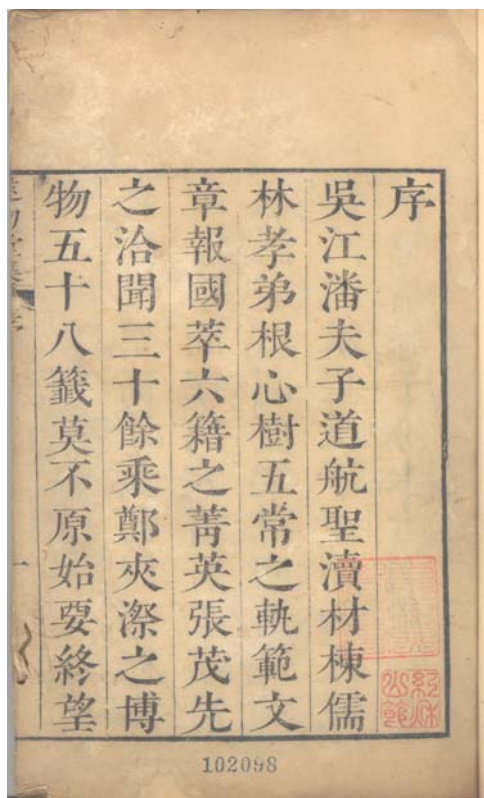 序
吳江潘夫子道航聖瀆材棟儒
林孝弟根心樹五常之軌範文
章報國萃六籍之菁英張茂先
之洽聞三十餘乘鄭夾漈之博
物五十八籖莫不原始要終望
102098